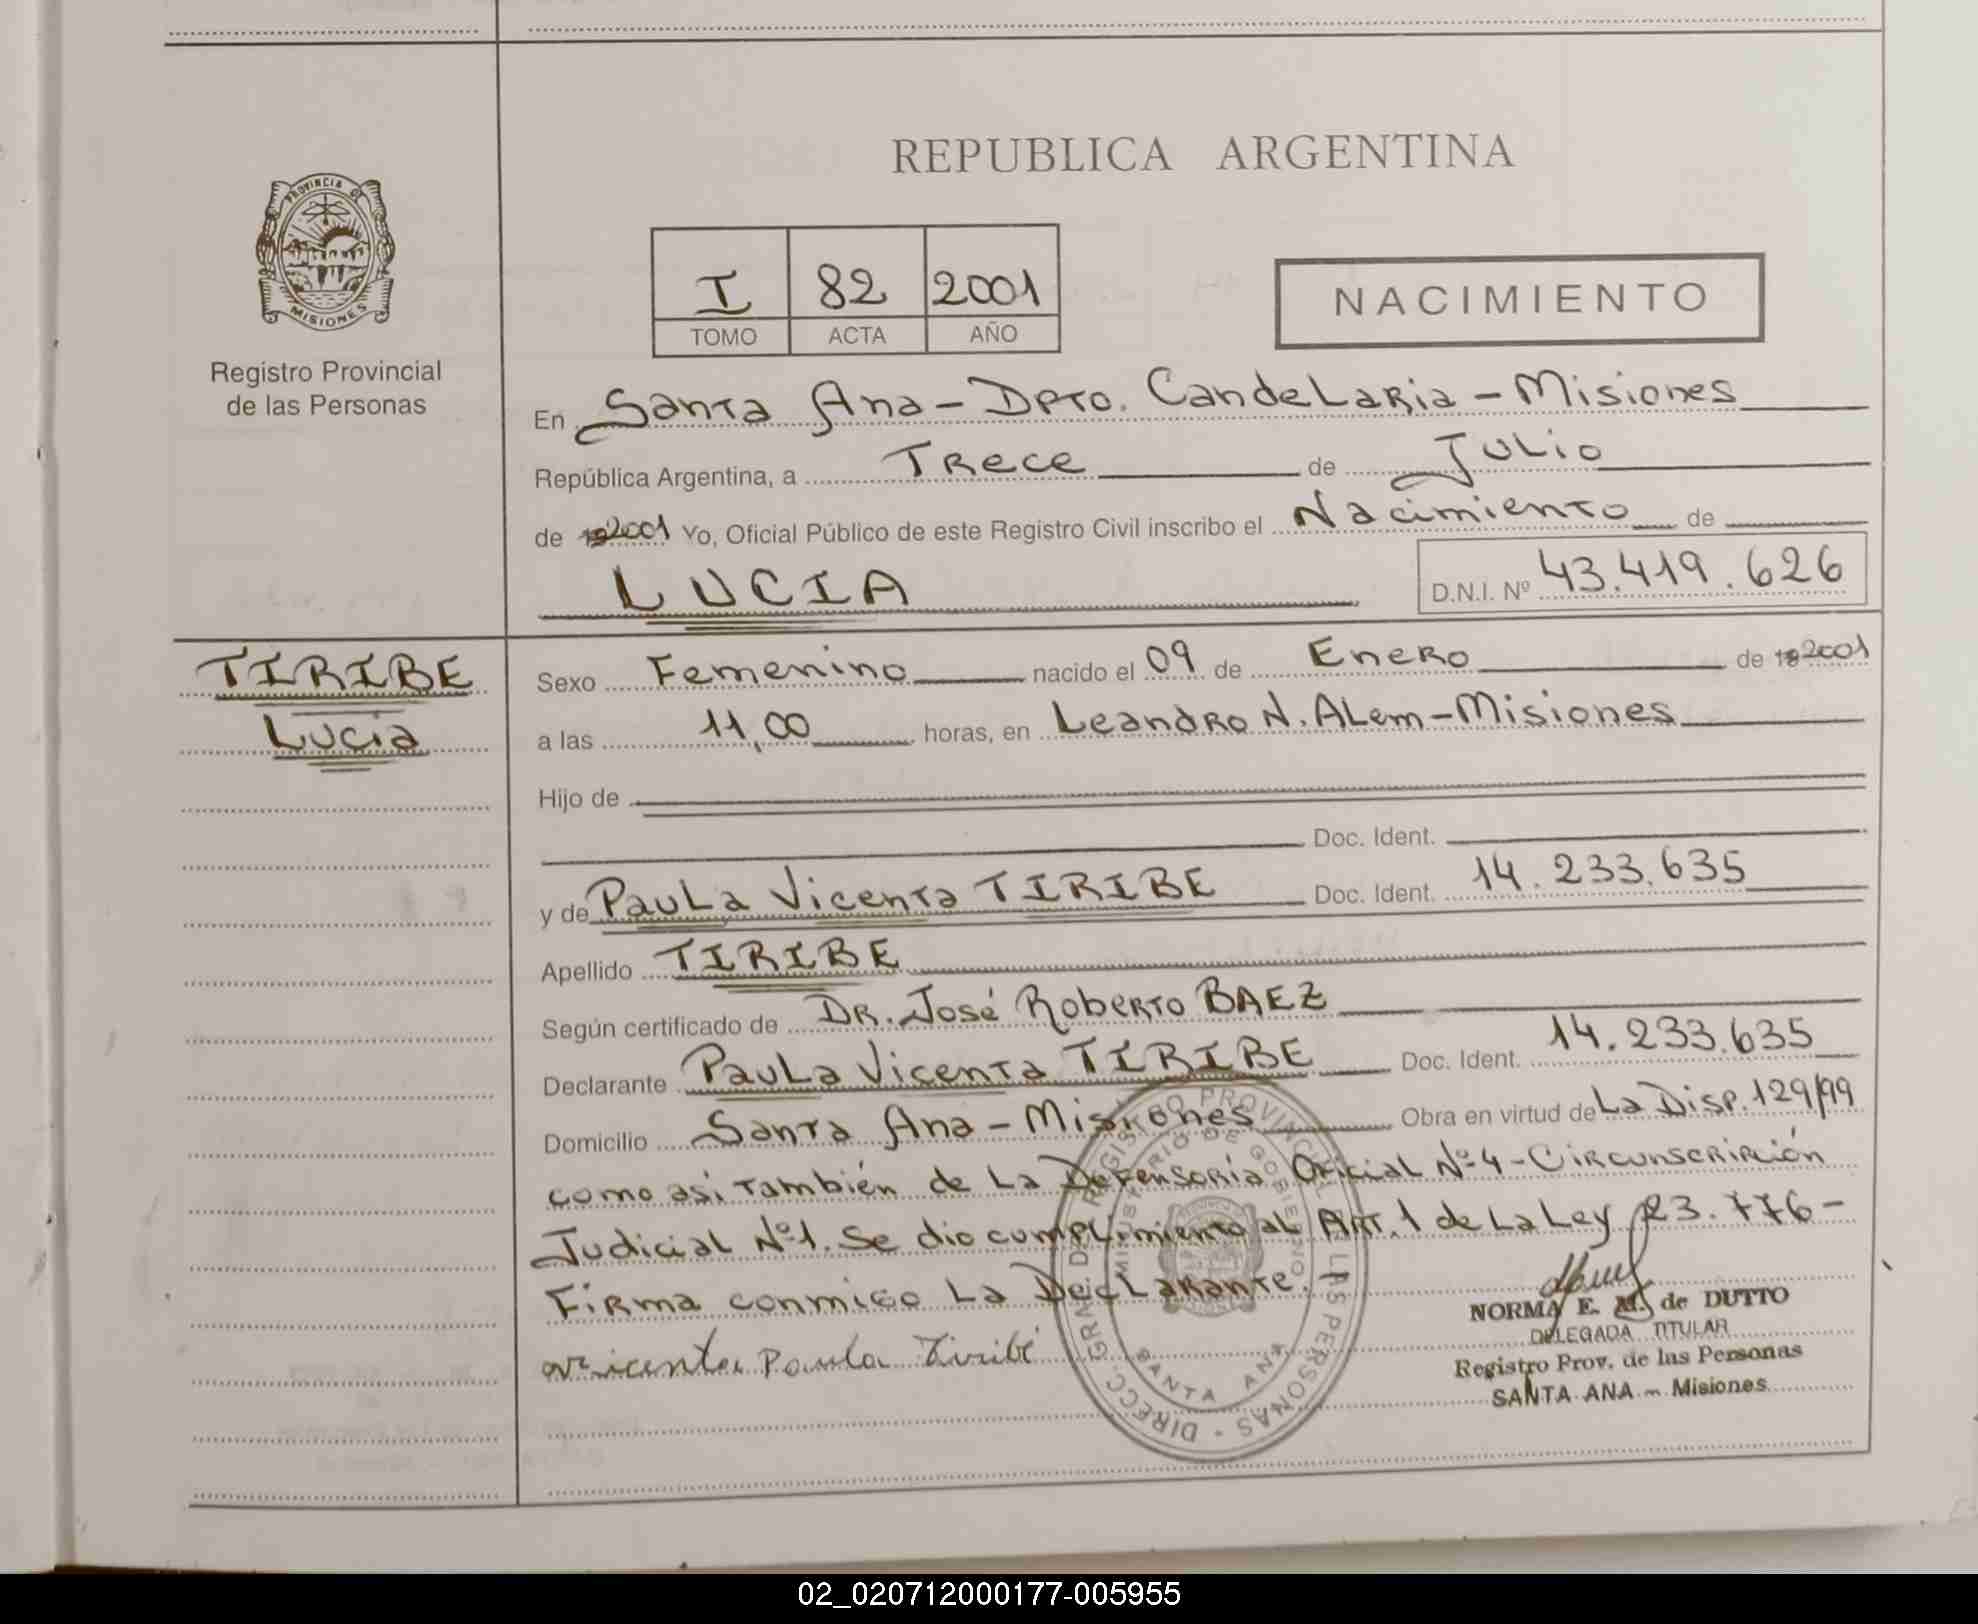 REPUBLICA ARGENTINA
PROVINCIA DE
MISIONES
Registro Provincial
de las Personas
I 82 2001
TOMO ACTA AÑO
NACIMIENTO
En Santa Ana - Dpto. Candelaria - Misiones
República Argentina, a Trece de Julio
de 192001 Yo, Oficial Público de este Registro Civil inscribo el Nacimiento de
LUCIA
D.N.I. Nº 43.419.626
TIRIBE
Lucia
Sexo Femenino nacido el 09 de Enero de 192001
a las 11,00 horas, en Leandro N. Alem - Misiones
Hijo de
Doc. Ident.
y de Paula Vicenta TIRIBE Doc. Ident. 14.233.635
Apellido TIRIBE
Según certificado de Dr. José Roberto BAEZ
Declarante Paula Vicenta TIRIBE Doc. Ident. 14.233.635
Domicilio Santa Ana - Misiones Obra en virtud de La Disp. 129/99
como asi también de La Defensoria Oficial Nº 4 - Circunscripción
Judicial Nº 1. Se dio cumplimiento al Art. 1 de La Ley 23.776 -
Firma conmigo La Declarante. -
Vicenta Paula Tiribé
DIRECC. GRAL. DE REGISTRO PROVINCIAL DE LAS PERSONAS
MINISTERIO DE GOBIERNO
SANTA ANA
NORMA E. M. de DUTTO
DELEGADA TITULAR
Registro Prov. de las Personas
SANTA ANA - Misiones
02_020712000177-005955